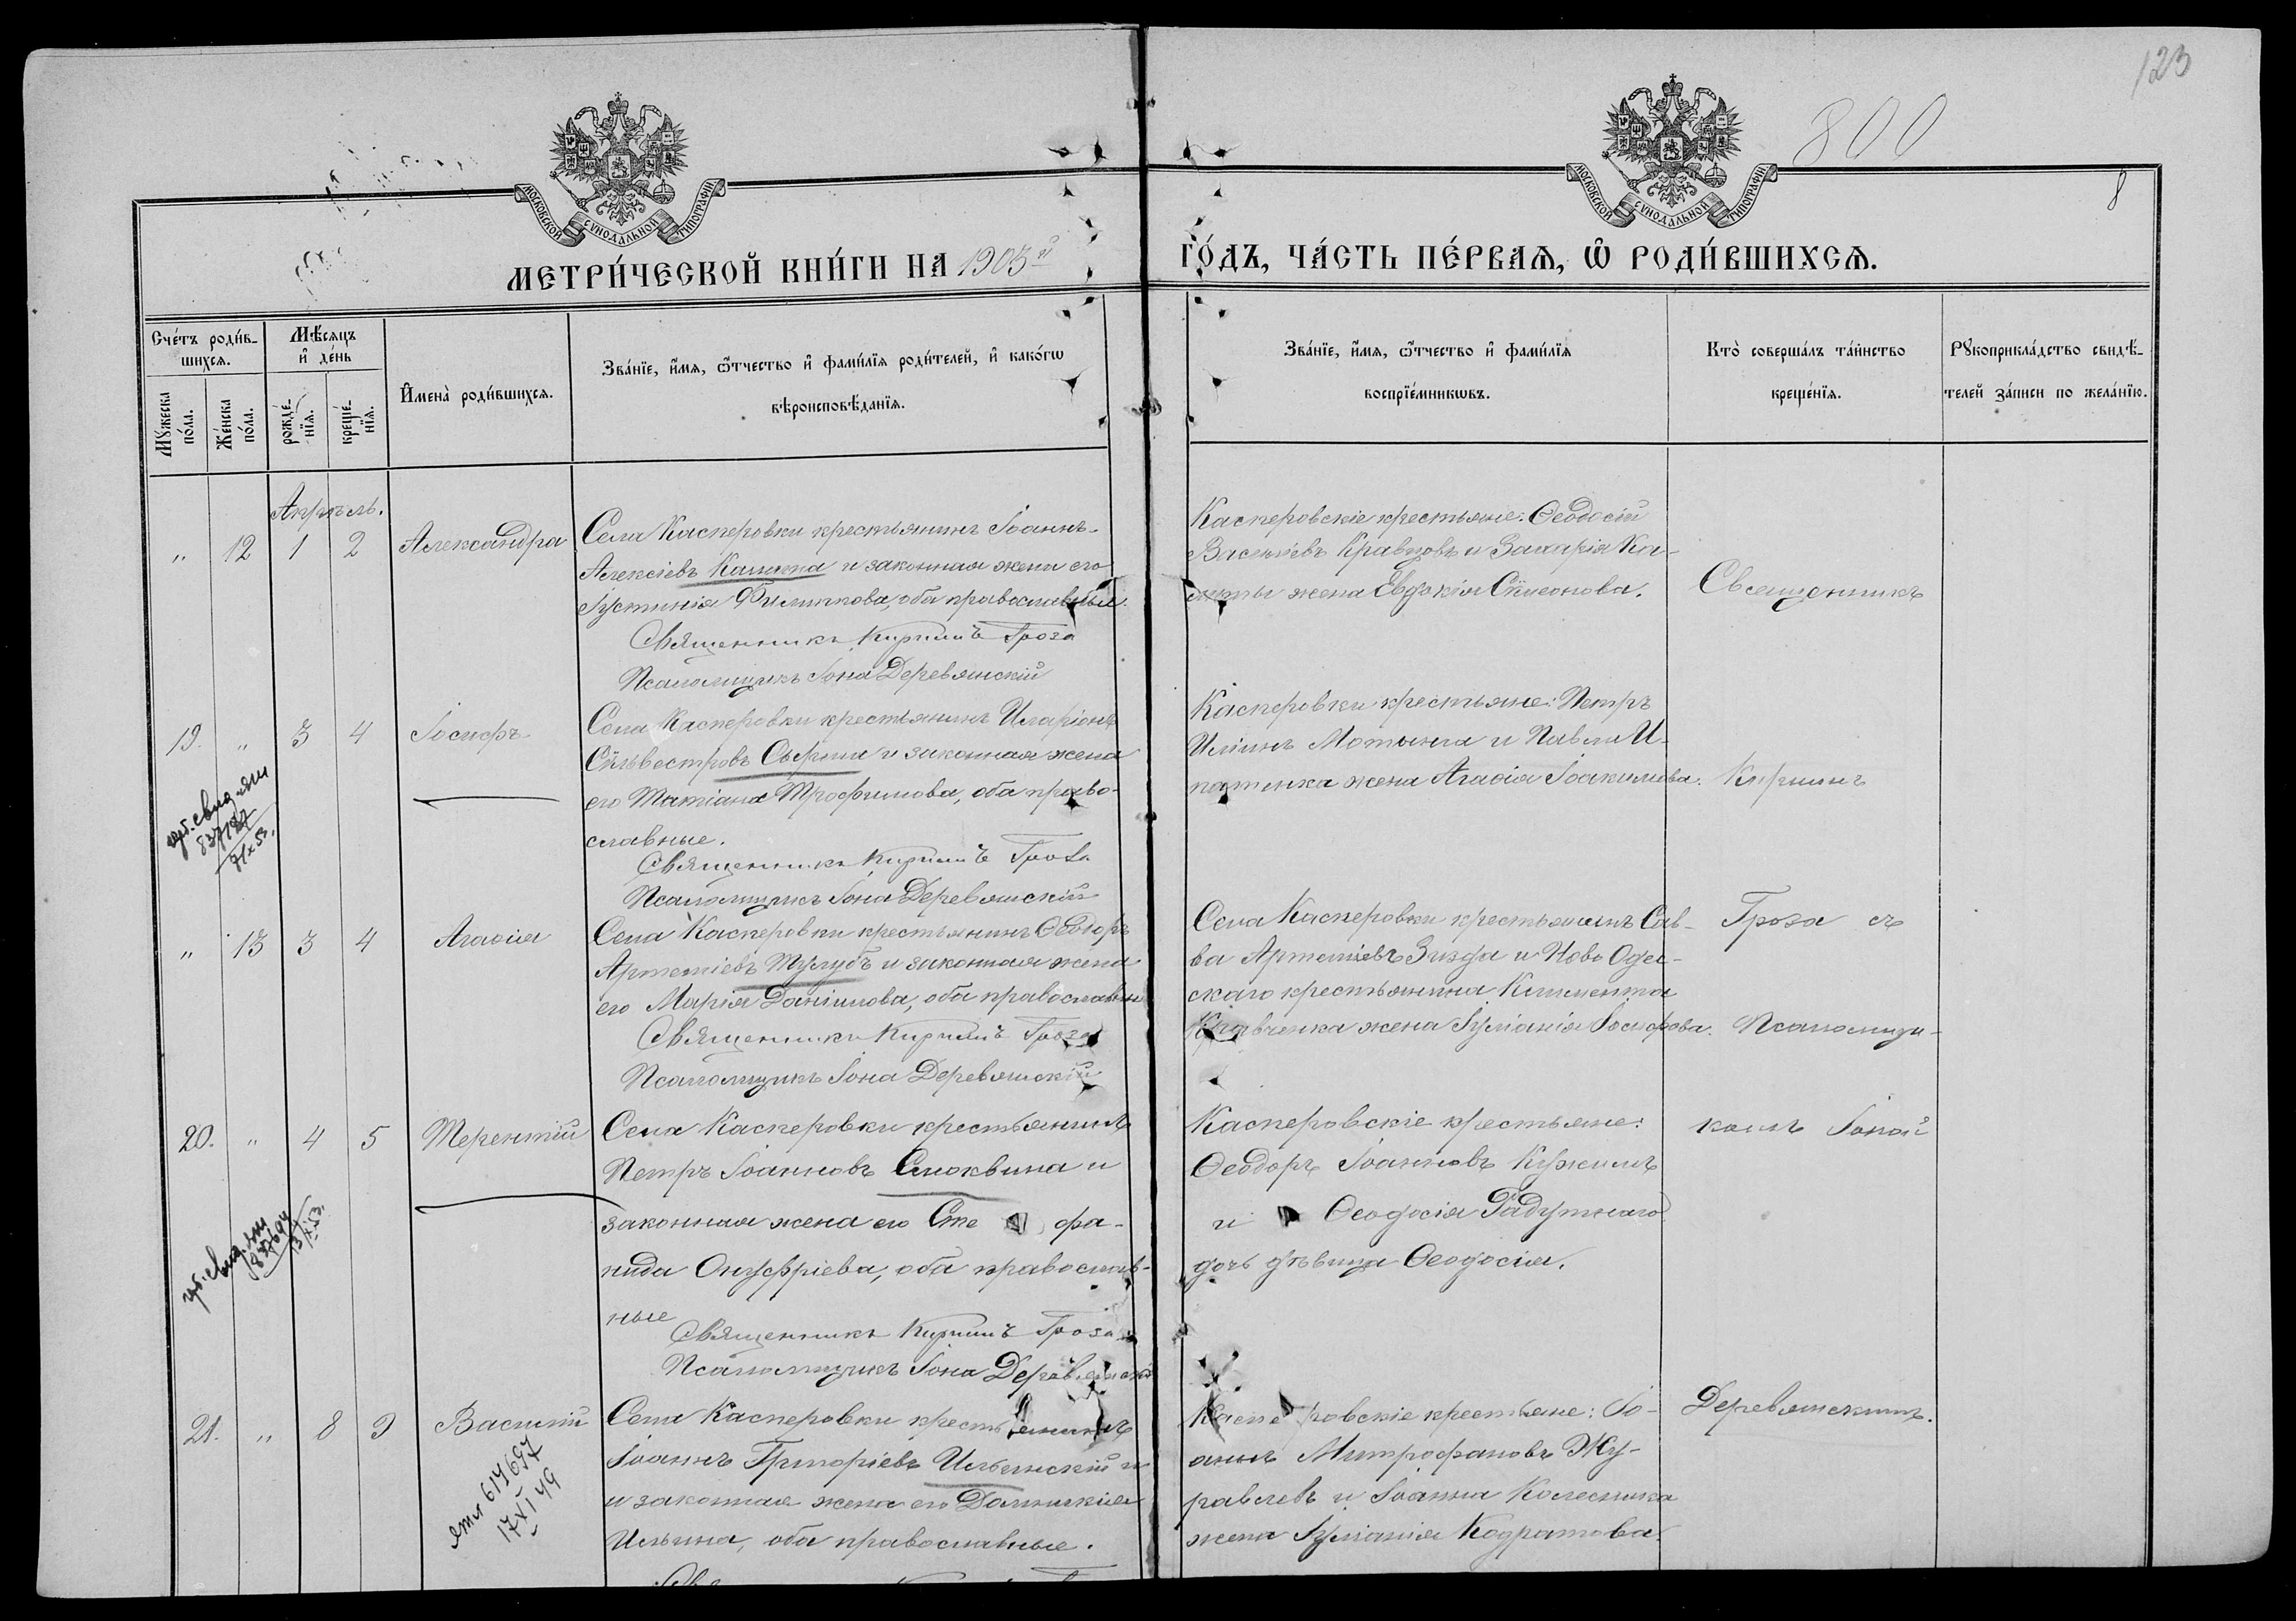 123
800
8
МОСКОВСКОЙ СѴНОДАЛЬНОЙ ТИПОГРАФІИ
МОСКОВСКОЙ СѴНОДАЛЬНОЙ ТИПОГРАФІИ
МЕТРИ́ЧЕСКОЙ КНИ́ГИ НА 1903й
ГО́ДЪ, ЧА́СТЬ ПЕ́РВАѦ, Ѽ РОДИ́ВШИХСѦ.
Сче́тъ роди́в-
шихсѧ.
Мꙋ́жеска по́ла.
Же́нска по́ла.
Мѣ́сѧцъ
и҆ де́нь
рожде́-
нїѧ.
креще́-
нїѧ.
И҆мена̀ роди́вшихсѧ.
Зва́нїе, и҆́мѧ, ѻ҆́тчество и҆ фами́лїѧ роди́телей, и҆ како́гѡ
вѣроисповѣ́данїѧ.
Зва́нїе, и҆́мѧ, ѻ҆́тчество и҆ фами́лїѧ
воспрїе́мникѡвъ.
Кто̀ соверша́лъ та́инство
креще́нїѧ.
Рꙋкоприкла́дство свидѣ́-
телей за́писи по жела́нїю.
Апрѣль.
„ 12 1 2 Александра
Села Касперовки крестьянинъ Іоаннъ
Алексіевъ Калина и законная жена его
Іустинія Филиппова, оба православные.
Священникъ Кириллъ Гроза
Псаломщикъ Іона Деревянскій
Касперовскіе крестьяне: Ѳеодосій
Васильевъ Кравцовъ и Захарія Ка-
жена Евдокія Симеонова.
Священникъ
19. „ 3 4 Іосифъ
Села Касперовки крестьянинъ Иларіонъ
Сильвестровъ Сырота и законная жена
его Татіана Трофимова, оба право-
славные.
Священникъ Кириллъ Гроза
Псаломщикъ Іона Деревянскій
837187
Касперовки крестьяне: Петръ
Иліинъ Мотынга и Павла И-
патенка жена Агафія Іоакимова.
Кириллъ
„ 13 3 4 Агаѳія
Села Касперовки крестьянинъ Ѳеодоръ
Артеміевъ Тулубъ и законная жена
его Марія Даніилова, оба православные
Священникъ Кириллъ Гроза
Псаломщикъ Іона Деревянскій
Села Касперовки крестьянинъ Сав-
ва Артеміевъ и Ново Одес-
скаго крестьянина Климента
Кравченка жена Іуліанія Іосифова.
Гроза съ
Псаломщи-
20. „ 4 5 Терентій
Села Касперовки крестьянинъ
Петръ Іоанновъ Смоквина и
законная жена его Сте фа-
нида Онуфріева, оба православ-
ные
Священникъ Кириллъ Гроза
Псаломщикъ Іона Деревянскій
Касперовскіе крестьяне:
Ѳеодоръ Іоанновъ Кужимъ
и Ѳеодосія Радутнаго
дочь дѣвица Ѳеодосія.
комъ Іоной
21. „ 8 9 Василій
614647
17 VI 49
Села Касперовки крестьянинъ
Іоаннъ Григоріевъ Ильинскій и
и законная жена его Домникія
Ильина, оба православные.
Касперовскіе крестьяне: Іо-
аннъ Митрофановъ Жу-
равлевъ и Іоанна Колесника
жена Іуліанія Кодратова.
Деревянскимъ.